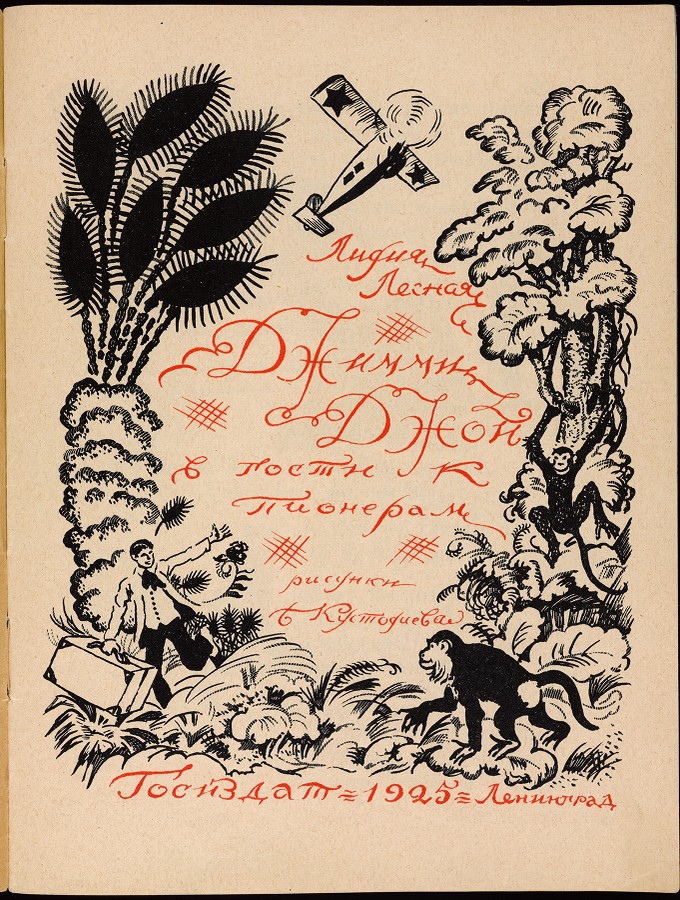 Лидия
Лесная
Джимми
Джой
в гости к
пионерам
рисунки
Б Кустодиева
Госиздат = 1925 = Ленинград